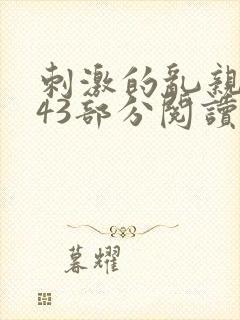 刺激的亂親
43部分閱讀
暮耀